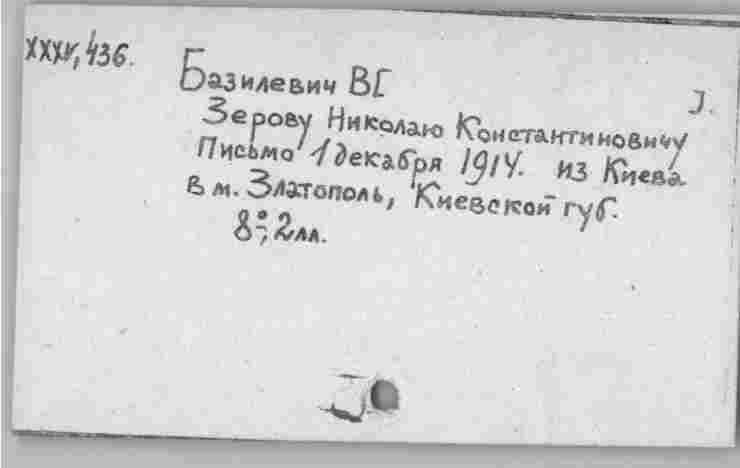 XXXV, 436.
Базилевич В[
J.
Зерову Николаю Константиновичу
Письмо 1 декабря 1914. из Киева
в м. Златополь, Киевской губ.
8°; 2 лл.